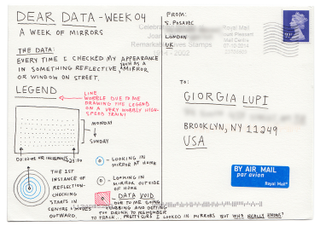 DEAR DATA - WEEK 04
A WEEK OF MIRRORS
THE DATA:
EVERY TIME I CHECKED MY APPEARANCE
IN SOMETHING REFLECTIVE, SUCH AS A MIRROR
OR WINDOW ON STREET.
LEGEND
LINE
WOBBLE DUE TO ME
DRAWING THE LEGEND
ON A VERY WOBBLY HIGH-
SPEED TRAIN!
MONDAY
SUNDAY
= LOOKING IN
MIRROR AT HOME
= LOOKING IN
MIRROR OUTSIDE OF
HOME
THE 1ST
INSTANCE OF
REFLECTION-
CHECKING
STARTS IN
CENTRE & MOVES
OUTWARD.
= DATA VOID
DUE TO ME GOING
CLUBBING AND GETTING
TOO DRUNK TO REMEMBER
TO TRACK. PRESUMABLY I LOOKED IN MIRRORS BUT WHO REALLY KNOWS?
FROM:
S. POSAVEC
LONDON
UK
Royal Mail
07-10-2014
TO:
GIORGIA LUPI
BROOKLYN, NY 11249
USA
BY AIR MAIL
par avion
Royal Mail